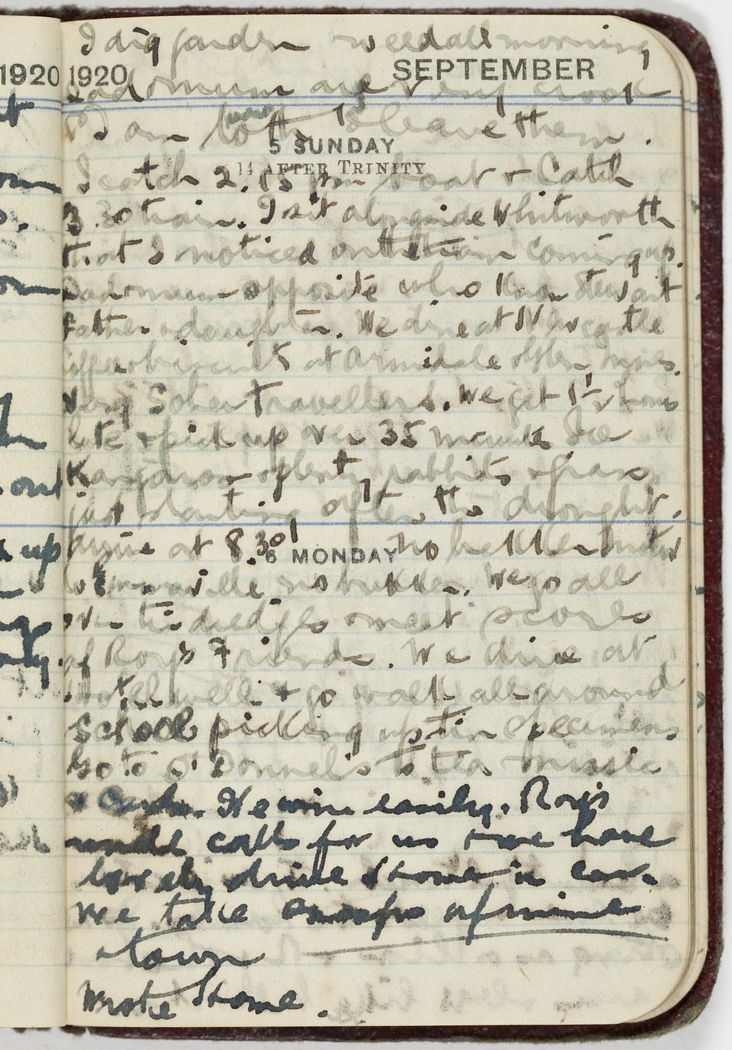 1920
I dig garden & weed all morning
1920 SEPTEMBER
Dad & mum are very crook
I am loth to leave them.
5 SUNDAY
14 AFTER TRINITY
I catch 2.15 pm boat & Catch
3.30 train. I sit alongside Whitworth
that I noticed on the train coming up.
Dad & mum opposite who know Stewart
father & daughter. We dine at Newcastle
at Armidale
Very Sober travellers. We get 1½ hours
late & pick up over 35 minutes See
Kangaroos & plenty rabbits & grass
just starting after the drought.
Arrive at 8.30
6 MONDAY
no better
We go all
over the dredges & meet scores
of Roy's Friends. We dine at
& go walk all around
School picking up tin specimens
Go to O'Donnel's to tea & music
& Cards. We win easily. Roy's
uncle calls for us & we have
lovely drive home in car.
We take snaps of mine
& town
Wrote home.